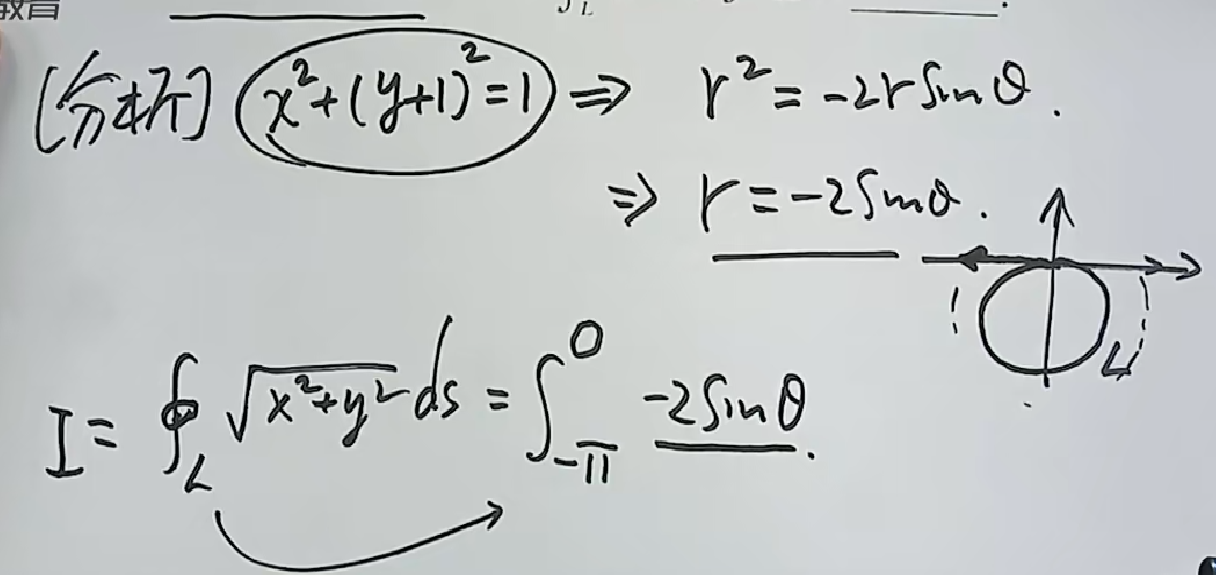 教育
[分析] x²+(y+1)²=1 ⇒ r²=-2r sinθ.
⇒ r=-2sinθ.
L
I=∮_L √(x²+y²) ds = ∫_{-π}^{0} -2sinθ.